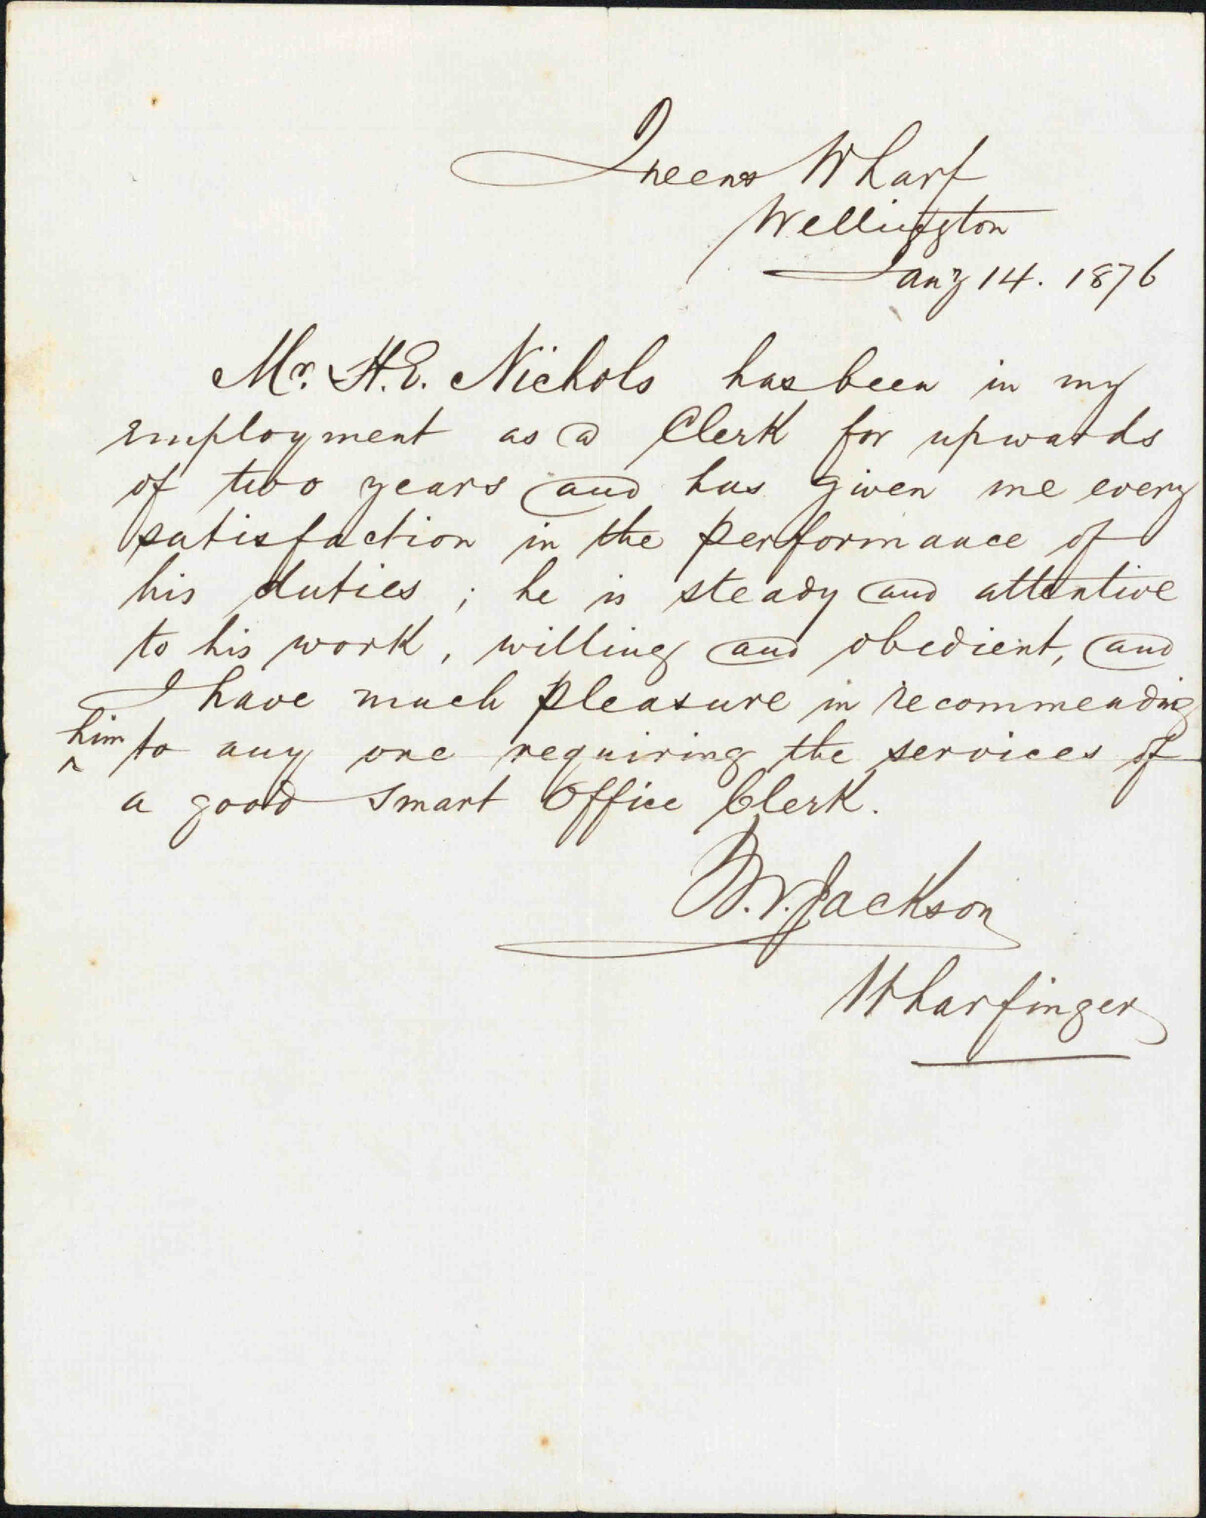 Queens Wharf
Wellington
Jany 14. 1876
Mr. H. E. Nichols has been in my
employment as a Clerk for upwards
of two years and has given me every
satisfaction in the performance of
his duties ; he is steady and attentive
to his work, willing and obedient, and
I have much pleasure in recommending
him to any one requiring the services of
a good smart Office Clerk.
Jackson
Wharfinger